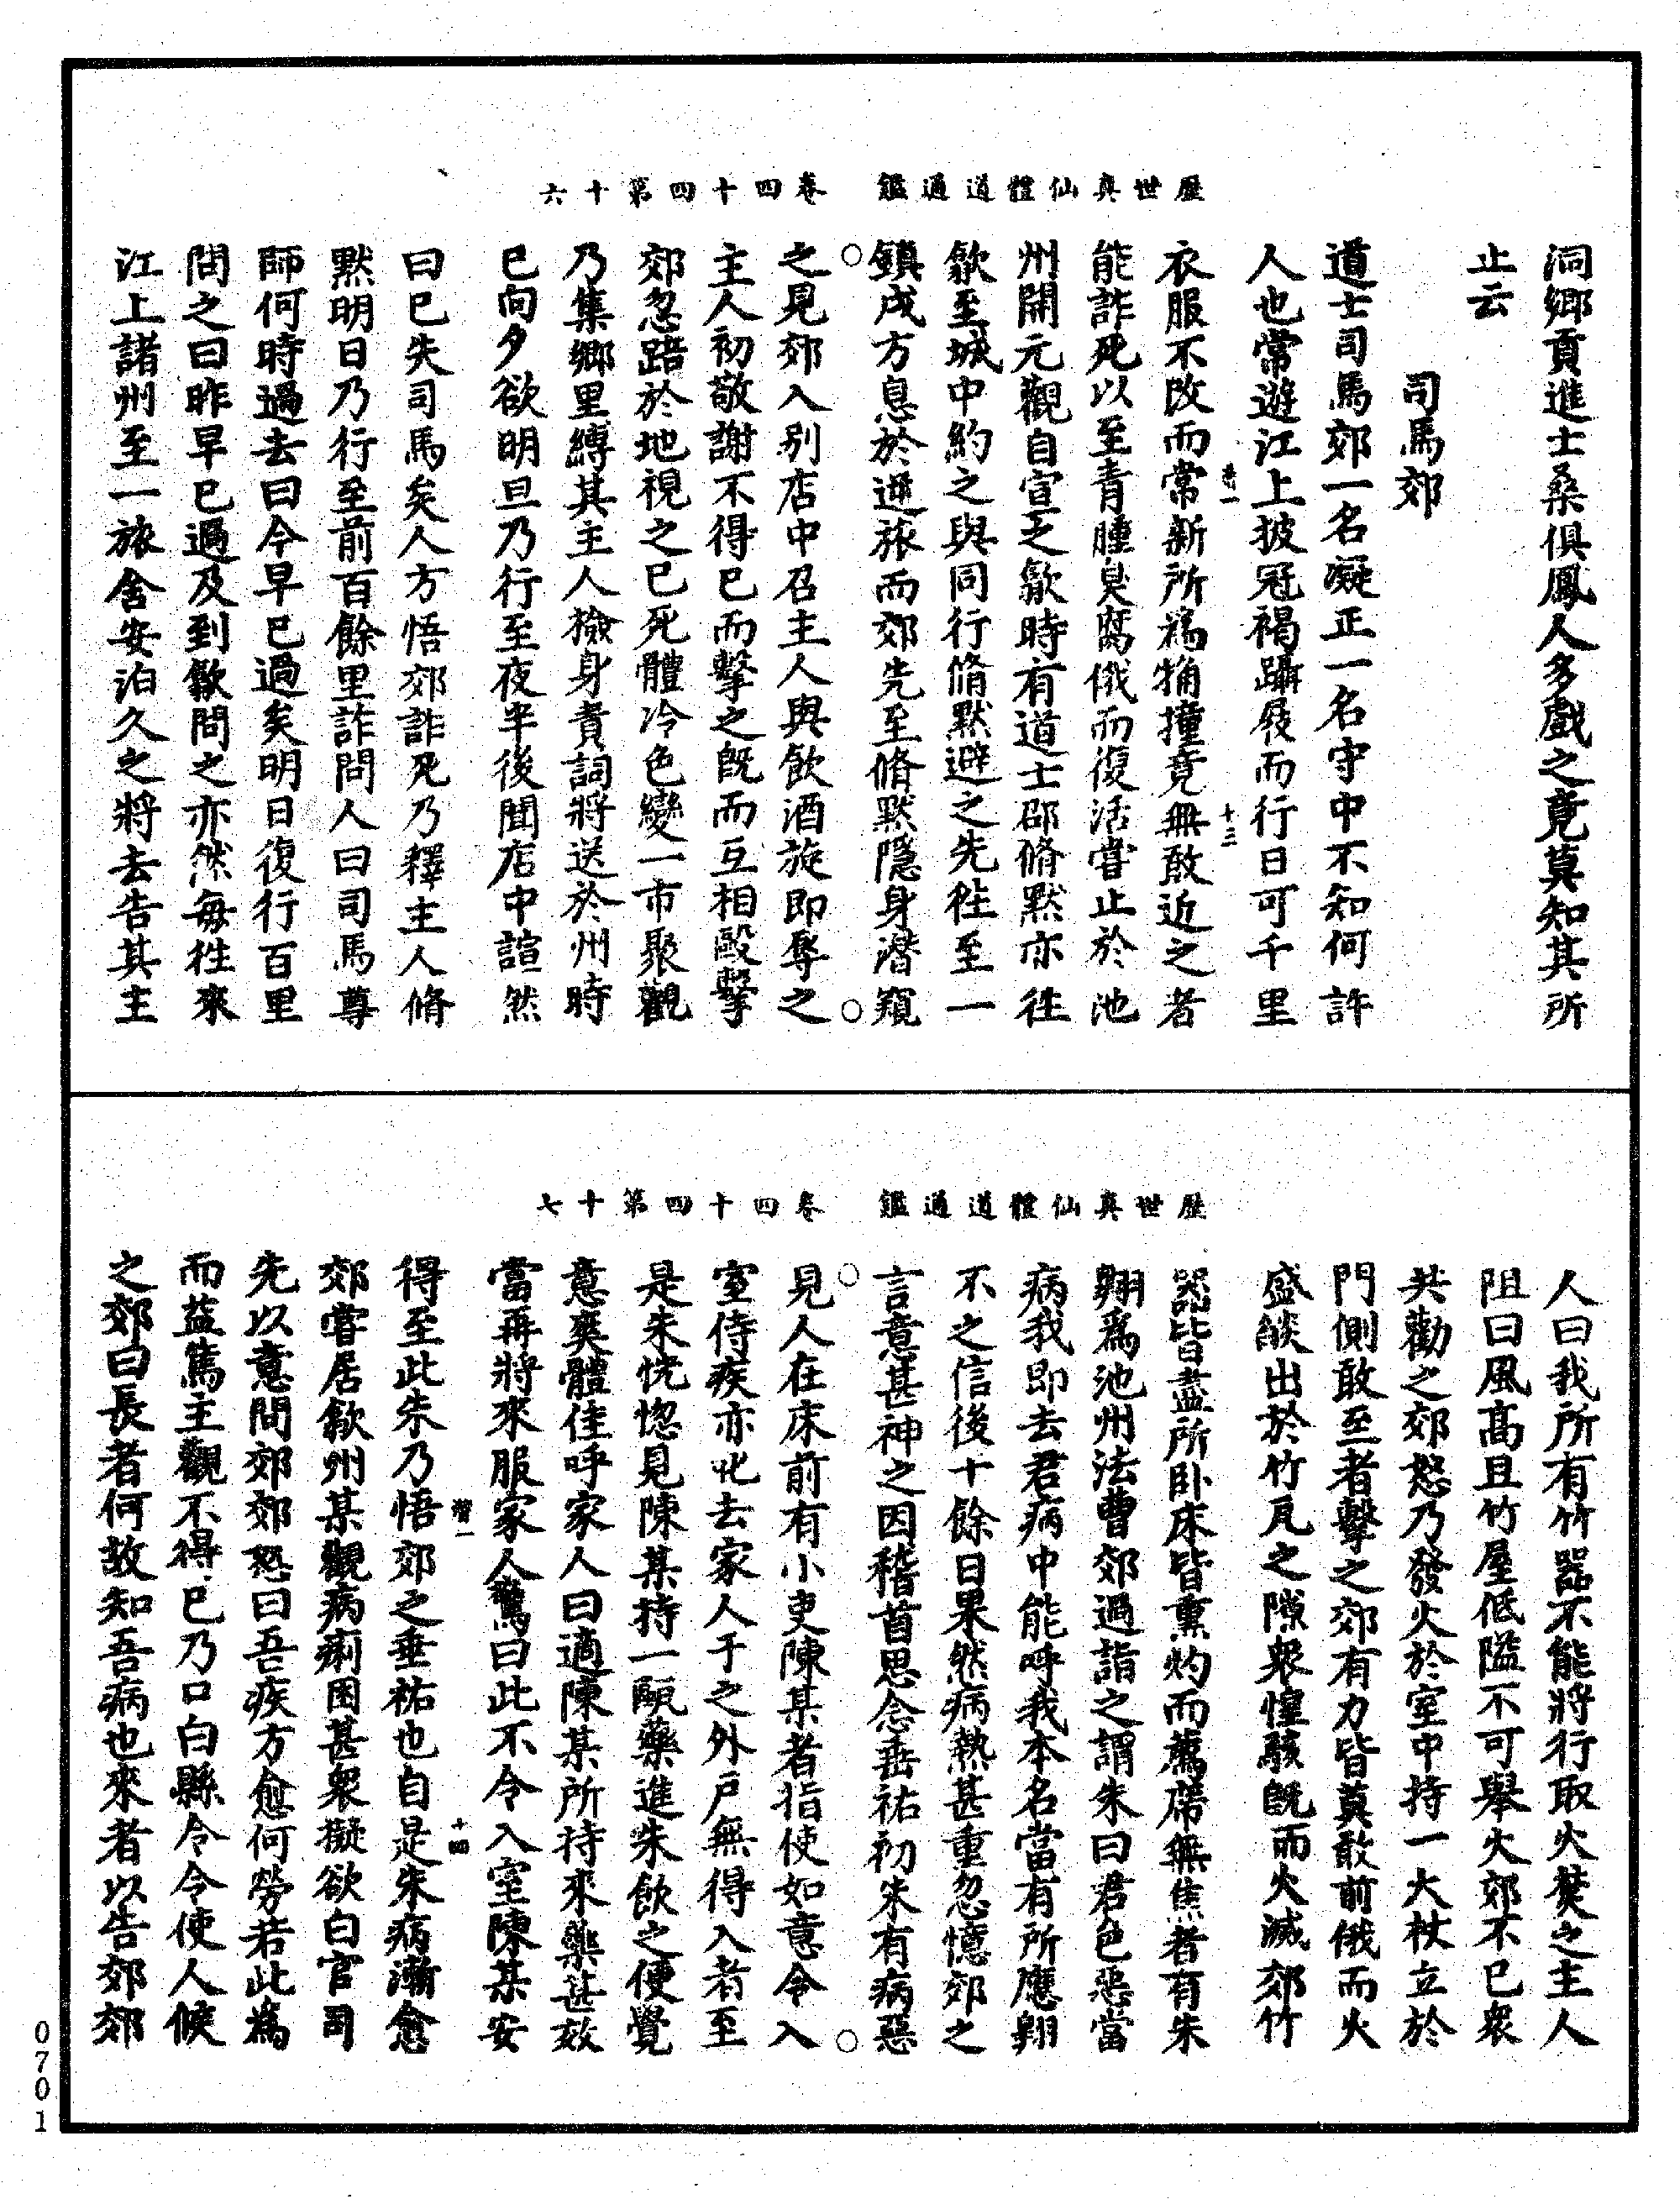 歷世真仙體道通鑑　卷四十四第四十六
洞鄉貢進士桑俱鳳人多戲之竟莫知其所
止云
司馬郊
道士司馬郊一名凝正一名守中不知何許
人也常遊江上披冠褐躡屐而行日可千里
衣服不改而常新所為犕撞竟無敢近之者
能詐死以至青腫臭腐俄而復活嘗止於池
州開元觀自宣之歙時有道士邵脩默亦往
歙至城中約之與同行脩默避之先往至一
鎮戍方息於逆旅而郊先至脩默隱身潛窺
之見郊入別店中召主人與飲酒旋即辱之
主人初敬謝不得已而擊之既而互相毆擊
郊忽踣於地視之已死體冷色變一市聚觀
乃集鄉里縛其主人撿身責詞將送於州時
已向夕欲明旦乃行至夜半後聞店中諠然
曰已失司馬矣人方悟郊詐死乃釋主人脩
默明日乃行至前百餘里詐問人曰司馬尊
師何時過去曰今早已過矣明日復行百里
問之曰昨早已過及到歙問之亦然每往來
江上諸州至一旅舍安泊久之將去告其主
歷世真仙體道通鑑　卷四十四第四十七
人曰我所有竹器不能將行取火焚之主人
阻曰風高且竹屋低隘不可舉火郊不已衆
共勸之郊怒乃發火於室中持一大杖立於
門側敢至者擊之郊有力皆莫敢前俄而火
盛燄出於竹瓦之隙衆惶駭既而火滅郊竹
器皆盡所卧床皆熏灼而薦席無焦者有朱
翱爲池州法曹郊過詣之謂朱曰君色惡當
病我即去君病中能呼我本名當有所應翱
不之信後十餘日果然病熱甚重忽憶郊之
言意甚神之因稽首思念垂祐初朱有病惡
見人在床前有小吏陳某者指使如意令入
室侍疾亦叱去家人于之外戶無得入者至
是朱恍惚見陳某持一甌藥進朱飲之便覺
意爽體佳呼家人曰適陳某所持來藥甚效
當再將來服家人驚曰此不令入室陳某安
得至此朱乃悟郊之垂祐也自是朱病漸愈
郊嘗居歙州某觀病痢困甚衆擬欲白官司
先以意問郊郊怒曰吾疾方愈何勞若此為
而益篤主觀不得已乃口白縣令令使人候
之郊曰長者何故知吾病也來者以告郊郊
十三
十四
0701